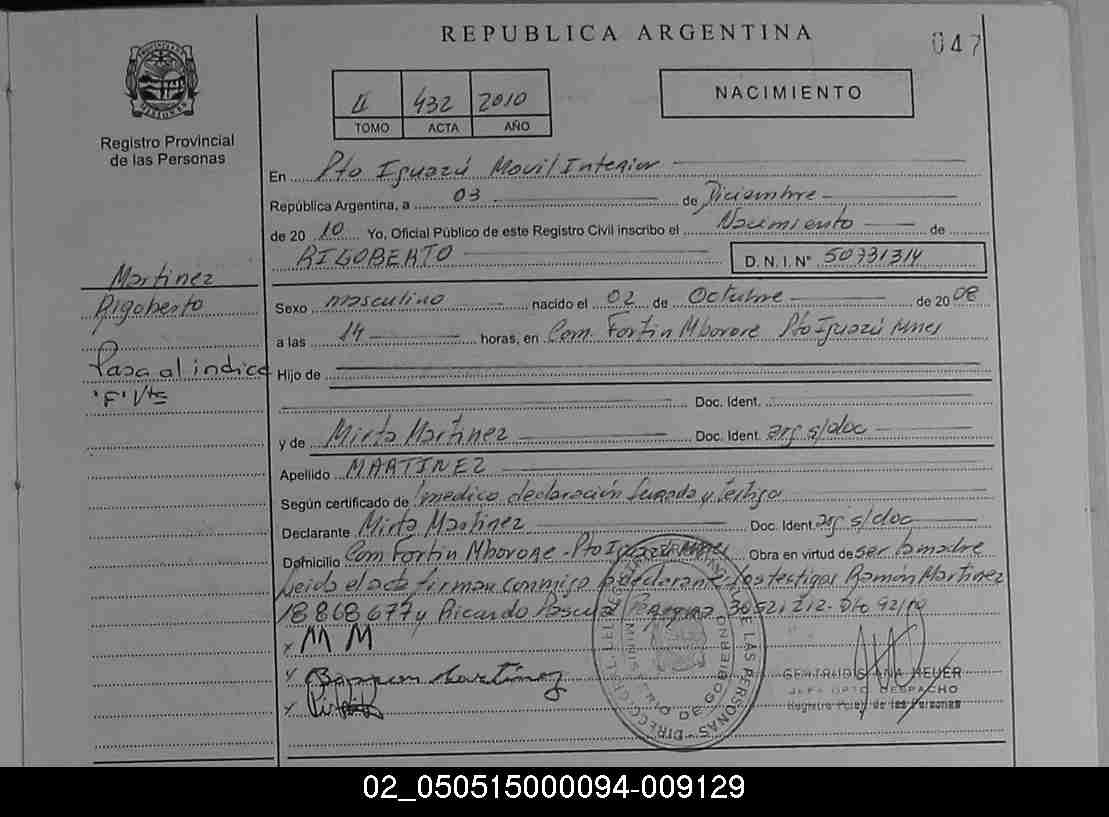 REPUBLICA ARGENTINA
047
PROVINCIA DE
MISIONES
Registro Provincial
de las Personas
II 432 2010
TOMO ACTA AÑO
NACIMIENTO
En Pto Iguazú Movil Interior
República Argentina, a 03 de Diciembre
de 20 10 Yo, Oficial Público de este Registro Civil inscribo el Nacimiento de
RIGOBERTO D.N.I. Nº 50731314
Martinez
Rigoberto
Pasa al indice
"F" Vts
Sexo masculino nacido el 02 de Octubre de 20 08
a las 14 horas, en Com. Fortin Mborore Pto Iguazú Mnes
Hijo de
Doc. Ident.
y de Mirta Martinez Doc. Ident. arg s/doc
Apellido MARTINEZ
Según certificado de medico, declaración Jurada y testigo
Declarante Mirta Martinez Doc. Ident. arg s/doc
Domicilio Com Fortin Mborore - Pto Iguazú Mnes Obra en virtud de ser la madre
Leida el acta firman conmigo la declarante los testigos Ramón Martinez
18868677 y Ricardo 30521212 - Dto 92/10
x M M
x Ramon Martinez
x
DE LAS PERSONAS
MINISTERIO DE GOBIERNO
GERTRUDIS ANA HEUER
JEFA DPTO DESPACHO
Registro Pcial de las Personas
02_050515000094-009129